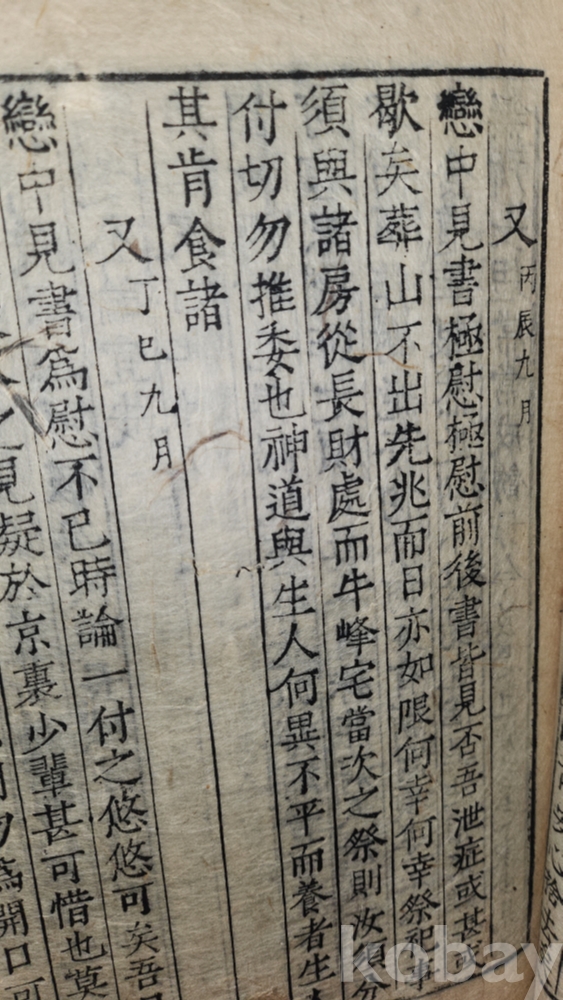 又 丙辰九月
戀中見書極慰極慰前後書皆見否吾泄症或甚或
歇矣葬山不出先兆而日亦如限何幸何幸祭祀事
須與諸房從長財處而牛峰宅當次之祭則汝須分
付切勿推委也神道與生人何異不平而養者生
其肯食諸
又 丁巳九月
戀中見書爲慰不已時論一付之悠悠可矣吾
之見疑於京裏少輩甚可惜也莫
勿爲開口可
kobay